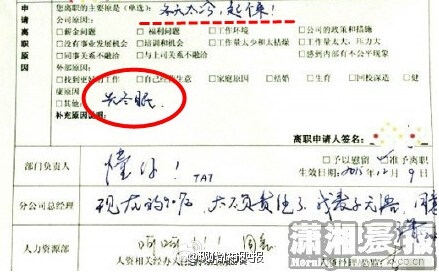 您离职的主要原是(单选): 冬天太冷,起不来!
申请原因
公司原因:
□薪金问题 □福利问题 □工作环境 □公司的政策和措施
□没有事业发展机会 □培训和机会 □工作量太少和太枯燥 □工作量太大,压力大
□同事关系不融洽 □与上司关系不融洽 □感到内部有不公平现象
外部原因:
□找到更好的工作 □自己经营生意 □家庭原因 □结婚 □生育 □回校深造 □健康原因
□其他: 去冬眠.
补充原因说明:
离职申请人签名:
部门负责人
懂你! TAT
□予以慰留 □准予离职
生效日期2015.12月9日
分公司总经理
现在的90后,太不负责任了,我妻子无语,同意
人力资源部
呵呵
人资相关经办人
人资经理/总监
潇湘晨报